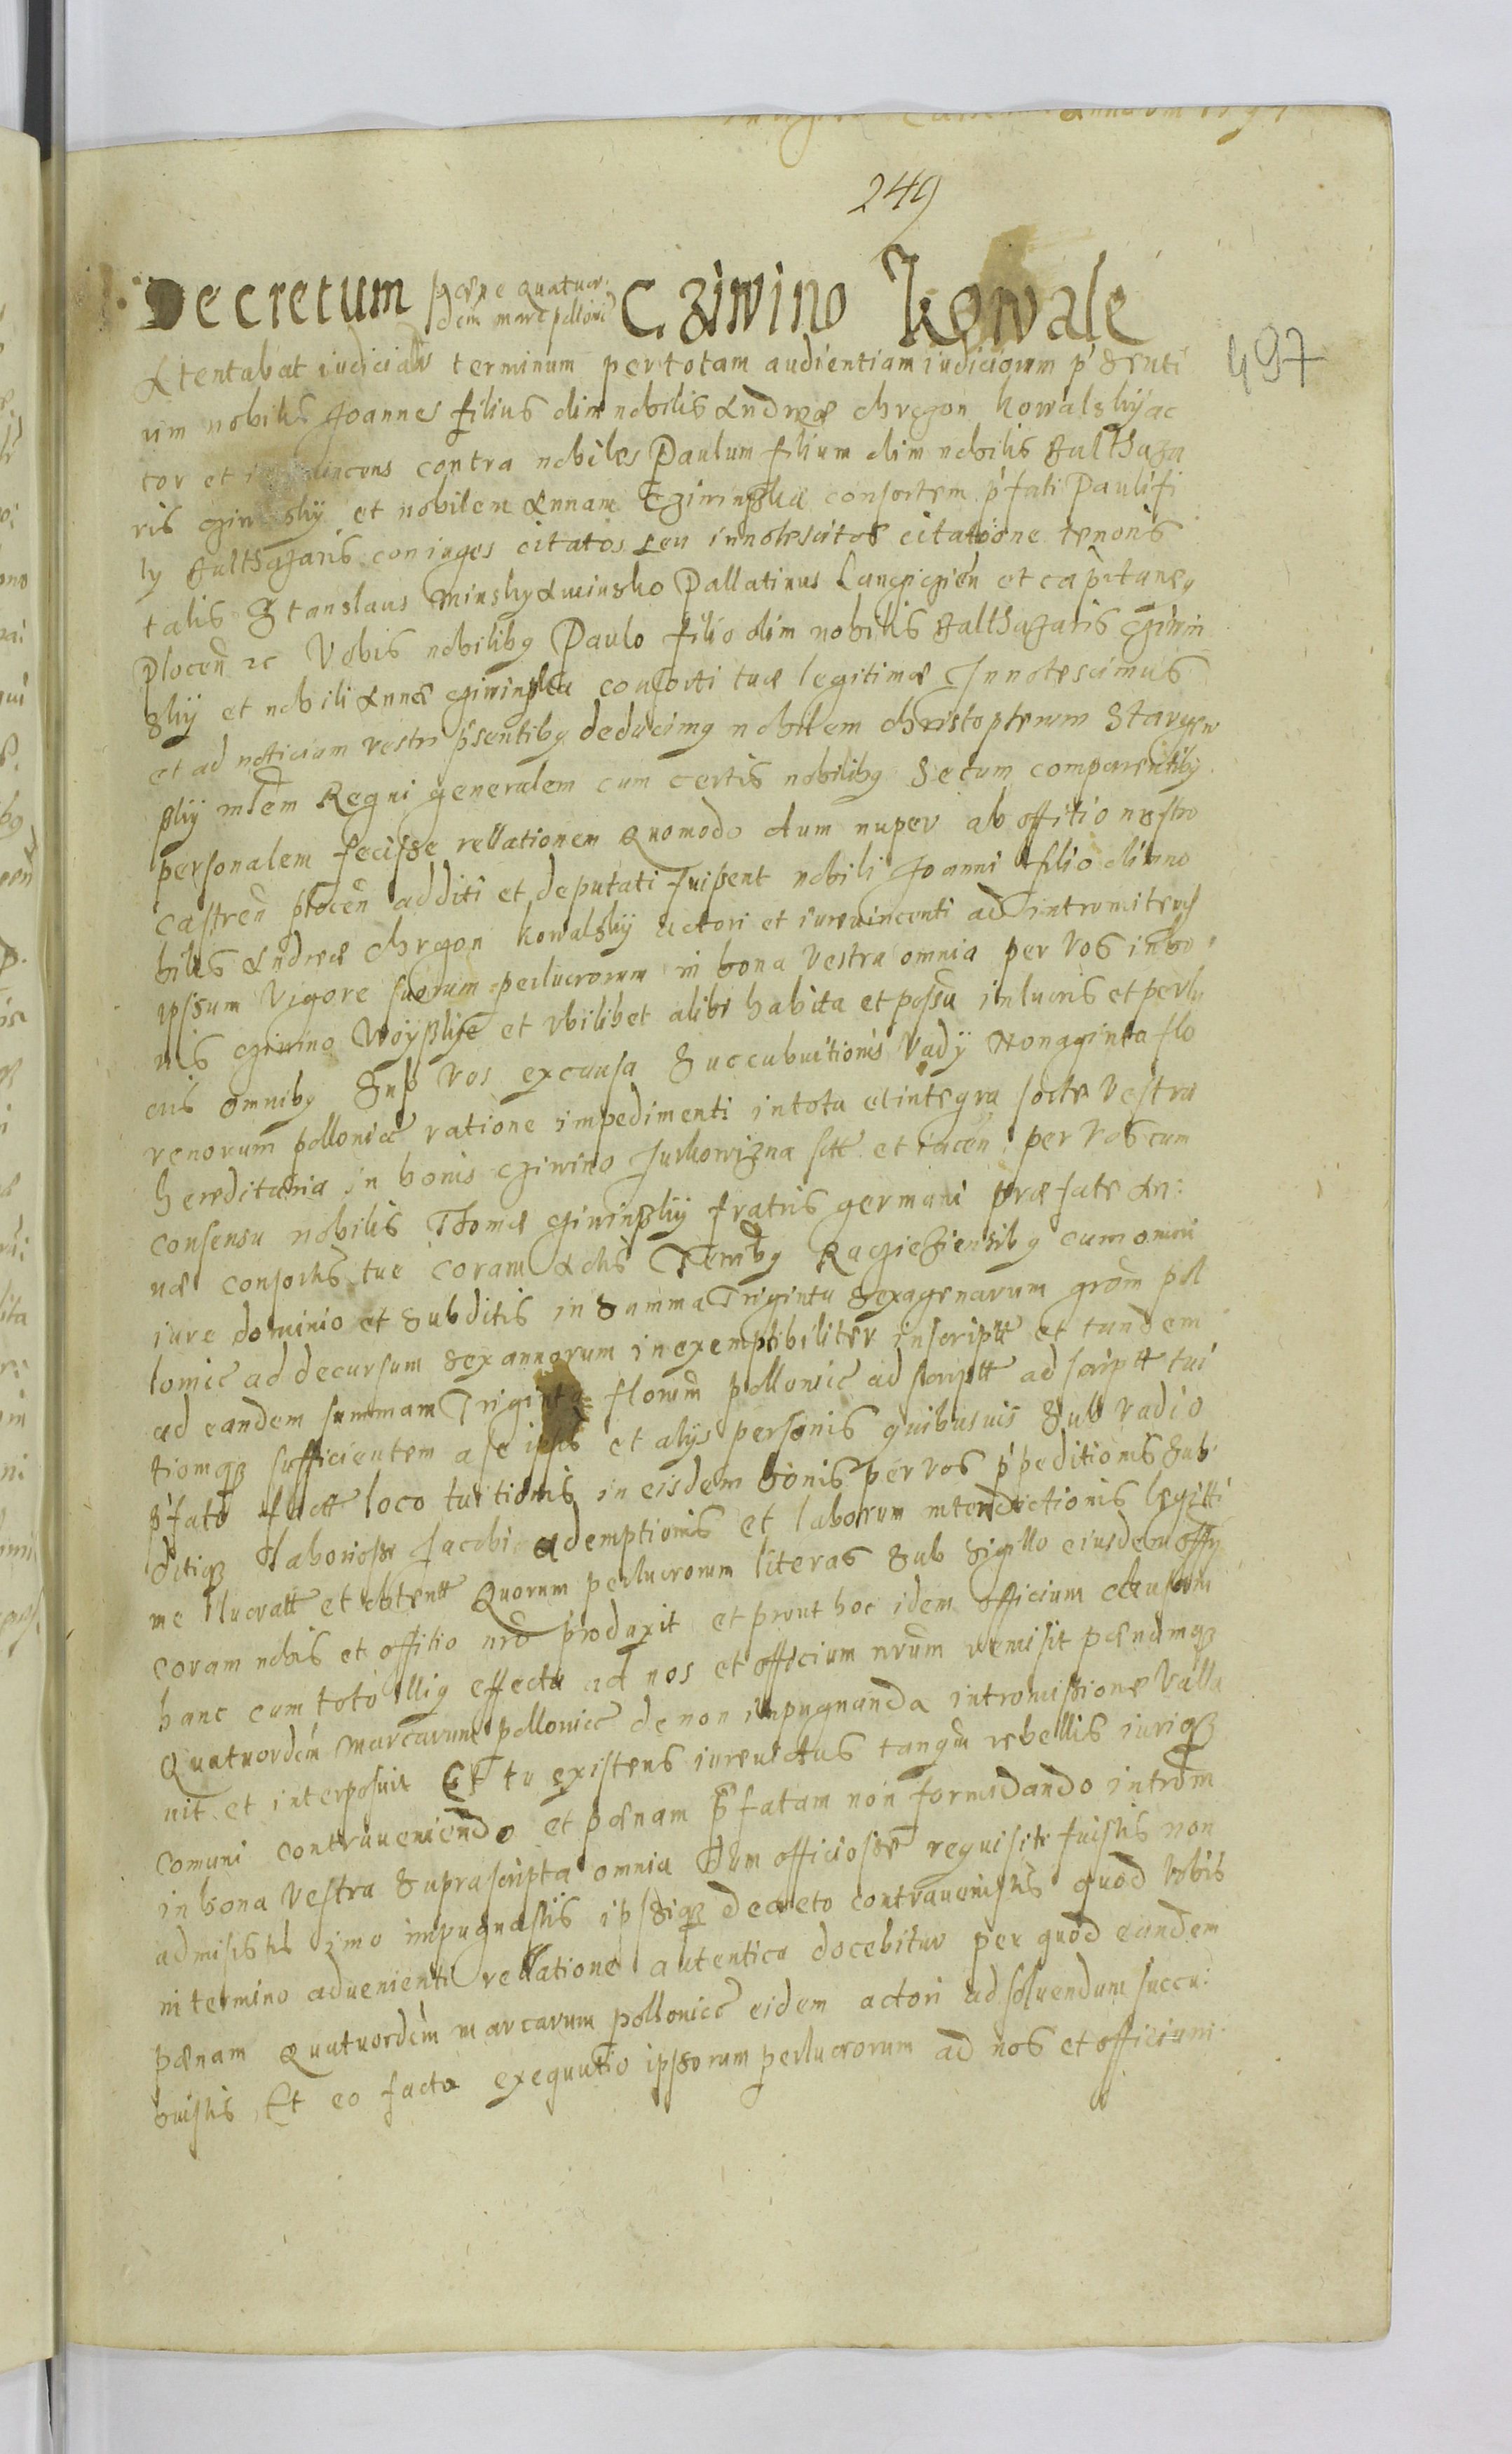 annorum 1597
249
Decretum pœne quatuor
dem marc pollonic
Cziwino Kowale
497
Attentabat iudicialr terminum per totam audientiam iudiciorum p̃senti
um nobilis Joannes filius olim nobilis Andreæ Chrzon Kowalskÿ ac
tor et contra nobiles Paulum filium olim nobilis Balthaza
ris Cziwinskÿ et nobilem Annam Cziwinska consortem p̃fati Pauli fi
ly Balthazaris coniuges citatos seu innotescitos citatione tenoris
talis Stanslaus Minsky A Minsko Pallatinus Lanciciẽn et capitane9
Plocen̄ 2c Vobis nobilibq Paulo filio olim nobilis Balthazaris Cziwin
skÿ et nobili Annæ Cziwinska consorti tuæ legitimæ Innotescimus
et ad noticiam vestri p̃sentibq deducimq nobilem Christopherum
skÿ mlem Regni generalem cum certis nobilibq secum comparentibq
personalem fecisse rellationem Quomodo dum nuper ab offitio nostro
Castren̄ plocen̄ additi et deputati fuissent nobili Joanni filio olim no
bilis Andreæ Chrzon Kowalskÿ actori et iurevincenti ad intromitend
ipssum Vigore suorum perlucrorum in bona vestra omnia per vos in bo
nis Cziwino Woÿslize et vbilibet alibi habita et possū in lucris et perlu
cris omnibq sup vos ex causa succubuitionis Vadÿ Nonaginta flo
renorum pollonicć ratione impedimenti in tota et integra sorte vestra
hereditaria in bonis Cziwino Jurkowizna sitt et iacen̄ per vos cum
consensu nobilis Thomæ Cziwinskÿ fratris germani præfate An:
næ consortis tue coram Actis Terribq Raczieziensibq cum omni
iure dominio et subditis in summa Triginta sexagenarum grom pol
lonicć ad decursum sex annorum inexemptibiliter inscriptt et tandem
ad eandem summam Triginta florum̄ pollonicć ad scriptt ad scriptt tui
tionuqz sufficientem a se ipsis et alijs personis quibusuis sub vadio
p̃fato factt loco tuitionis in eisdem bonis per vos p̃peditionis sub
ditiqz laboriosi Jacobi ademptionis et laborum interdictionis legitti
me lucratt et obtentt Quorum perlucrorum literas sub sigillo eiusdem offy
coram nobis et offitio nrō produxit et prout hoc idem officium
hanc cum toto illiq effectu ad nos et officium nrūm remisit pœnamqz
Quatuordem̄ Marcarum pollonicć de non impugnanda intromissione valla
uit et interposuit Et tu existens iurevictus tanqm̄ rebellis iuriqz
comuni contraueniendo et pœnam p̃fatam non formidando introm
in bona vestra suprascripta omnia dum officiose requisiti fuistis non
admisistis imo impugnastis ipssiqz decreto contrauenistis quod vobis
in termino aduenienti rellatione autentica docebitur per quod eandem
pœnam Quatuordem̄ marcarum pollonicć eidem actori ad soluendum succu:
buistis Et eo facto exequutio ipssorum perlucrorum ad nos et officium